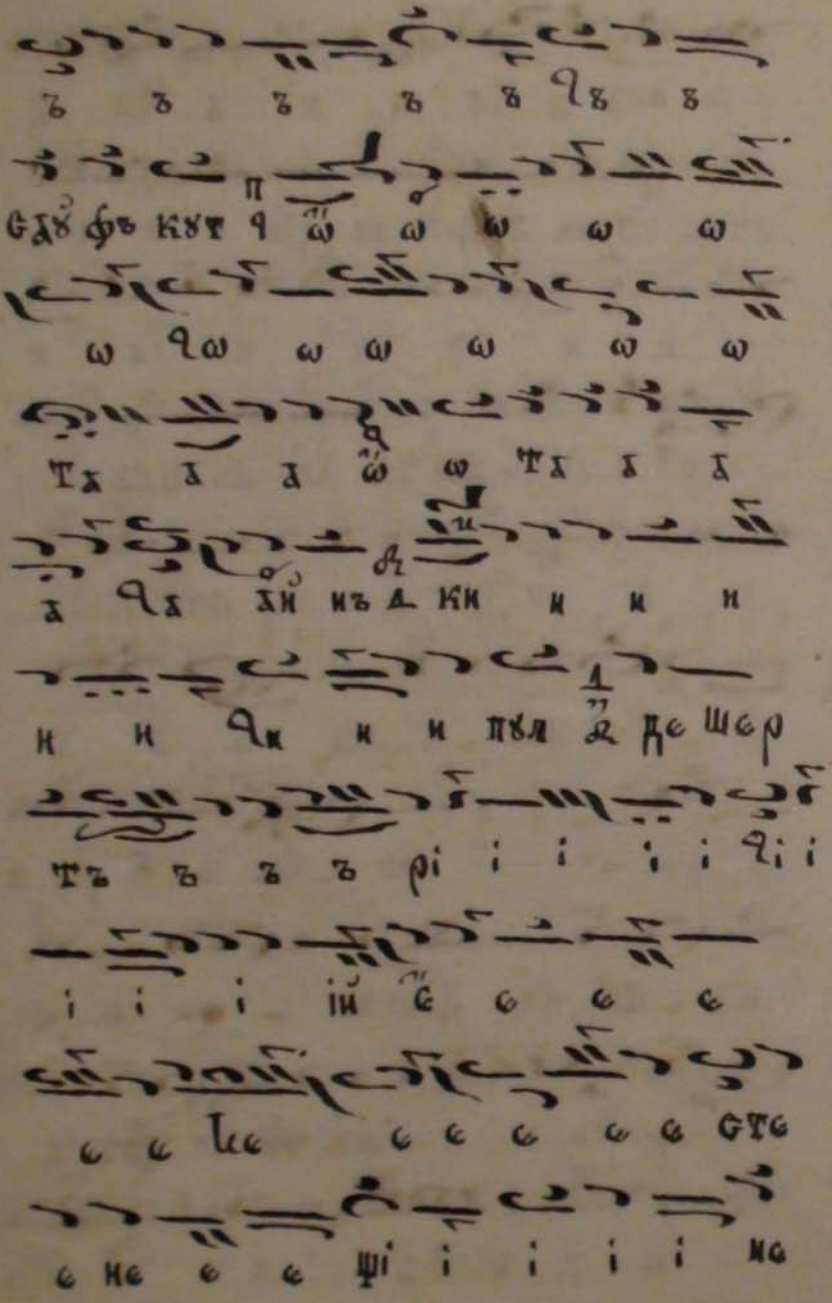 ъ ъ ъ ъ ꙋ Ч꙼ꙋ ꙋ
сăꙋ фъ кꙋт ч ѡ ѡ ѡ ѡ ѡ
ѡ чѡ ѡ ѡ ѡ ѡ ѡ
та а а ѡ ѡ та а а
а ча ай нъ д ки и и и
и и чи и и пꙋл де шер
тъ ъ ъ ъ рі і і і і чі і
і і і ій є є є є
є є є є є є є єтє
є нє є є щі і і і і нє